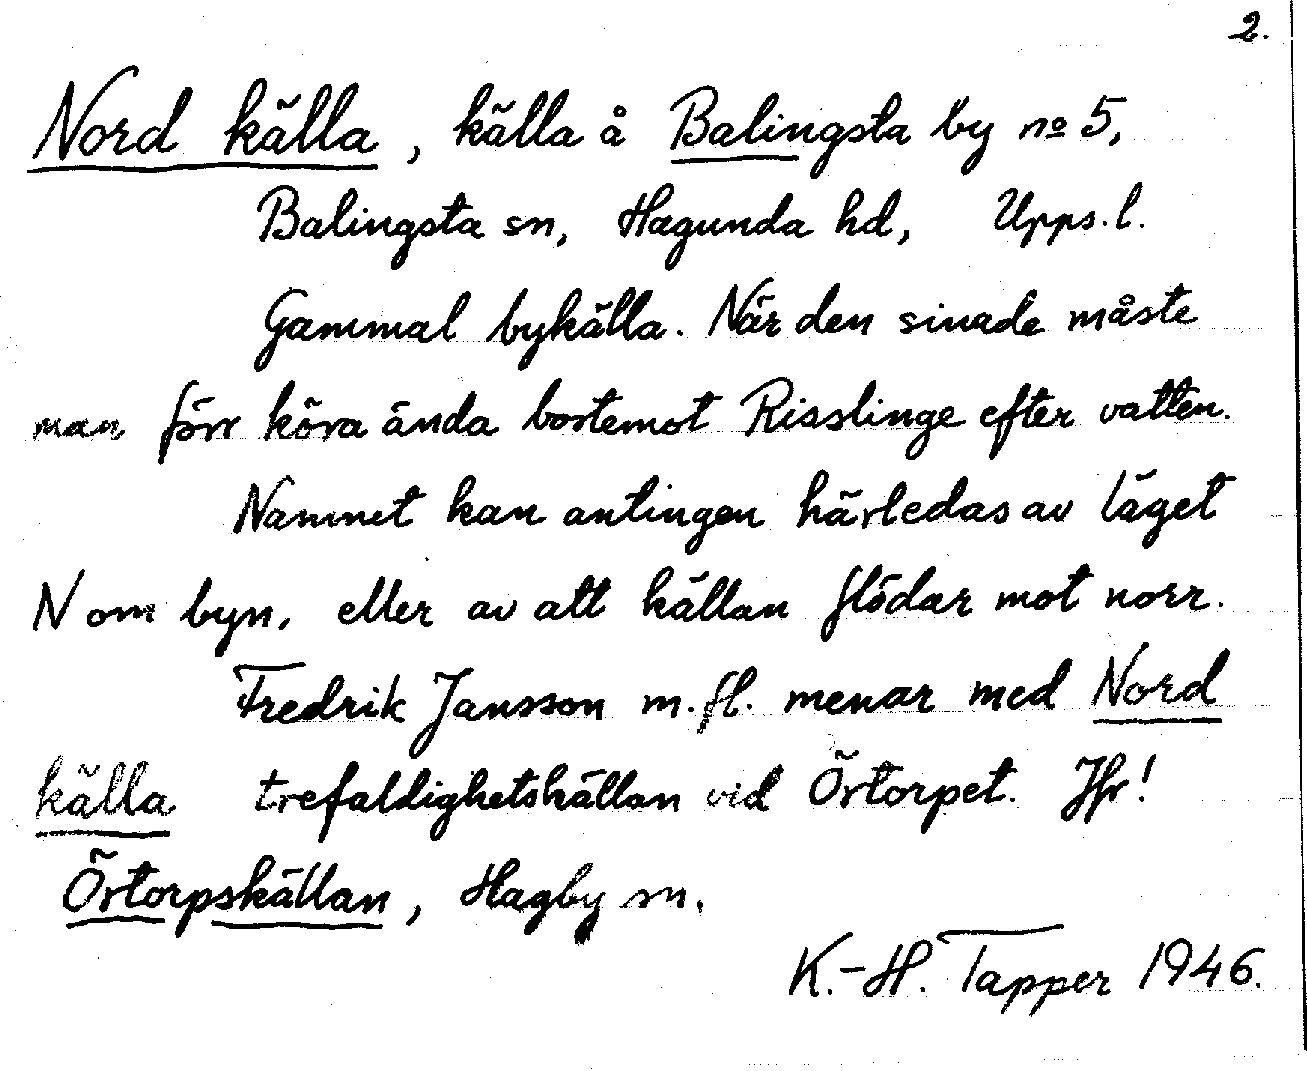 2.
Nord källa, källa å Balingsta by no 5,
Balingsta sn, Hagunda hd, Upps. l.
Gammal bykälla. När den sinade måste
man förr köra ända bortemot Risslinge efter vatten.
Namnet kan antingen härledas av läget
N om byn, eller av att källan flödar mot norr.
Fredrik Jansson m.fl. menar med Nord
källa trefaldighetskällan vid Örtorpet. Jfr!
Örtorpskällan, Hagby sn.
K.-H. Tapper 1946.